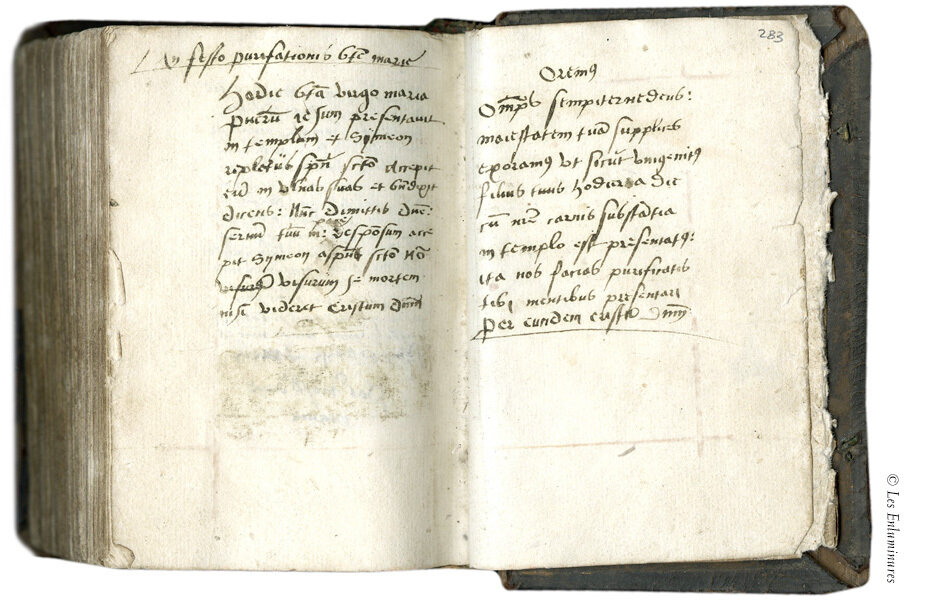 In festo purifationis bte marie
Hodie bta virgo maria
Pueru Jesum presentavit
in templum et Symeon
repletus spu scto accepit
eu in ulnas suas et bndixit
dicens: Nuc Dimittis Dne:
servu tuu in: Responsum acce
pit Symeon a spu scto no
visurum se mortem
nisi videret Cristum Dnm
283
Oremus
Omps sempiterne deus:
maiestatem tua supplices
exoramus ut sicut unigenitus
filius tuus hodierna die
cu nre carnis substatia
in templo est presentatus:
ita nos facias purificatis
tibi mentibus presentari
Per eundem cristu Dnm
© Les Enluminures